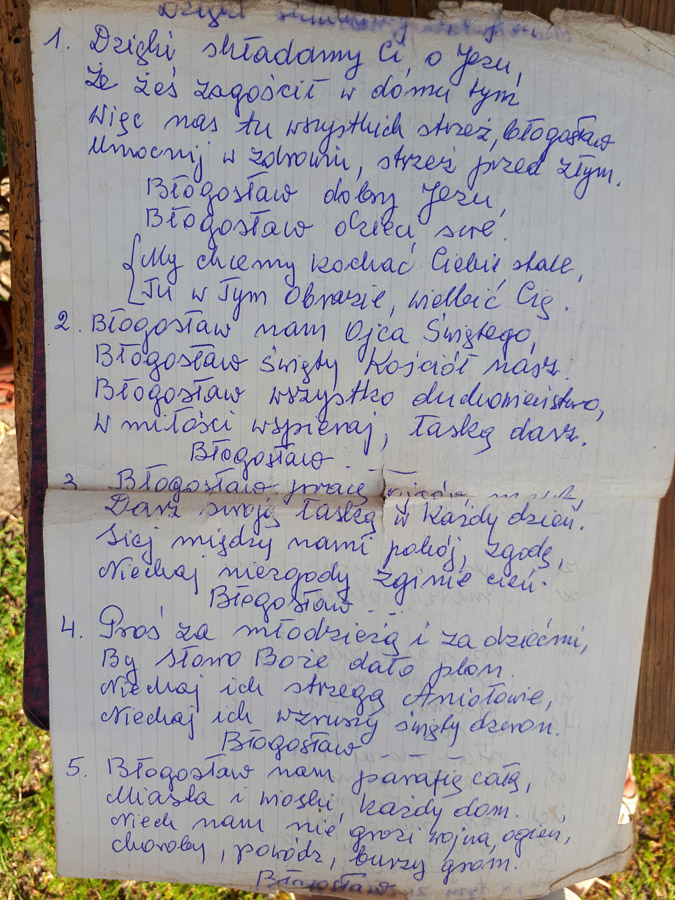 Dzięki
1. Dzięki składamy Ci, o Jezu,
Że żeś zagościł w domu tym
Więc nas tu wszystkich strzeż, błogosław
Umocnij w zdrowiu, strzeż przed złym.
Błogosław dobry Jezu,
Błogosław dzieci swe.
My chcemy kochać Ciebie stale,
Tu w Tym Obrazie, wielbić Cię.
2. Błogosław nam Ojca Świętego,
Błogosław święty Kościół nasz.
Błogosław wszystko duchowieństwo,
W miłości wspieraj, łaską darz.
Błogosław
3. Błogosław pracę
Darz swoją łaską w każdy dzień.
Siej między nami pokój, zgodę,
Niechaj niezgody zginie cień.
Błogosław...
4. Proś za młodzieżą i za dziećmi,
By słowo Boże dało plon.
Niechaj ich strzegą Aniołowie,
Niechaj ich wzruszy święty dzwon.
Błogosław
5. Błogosław nam parafię całą,
Miasta i wioski, każdy dom.
Niech nam nie grozi wojna, ogień,
choroby, powódź, burzy grom.
Błogosław